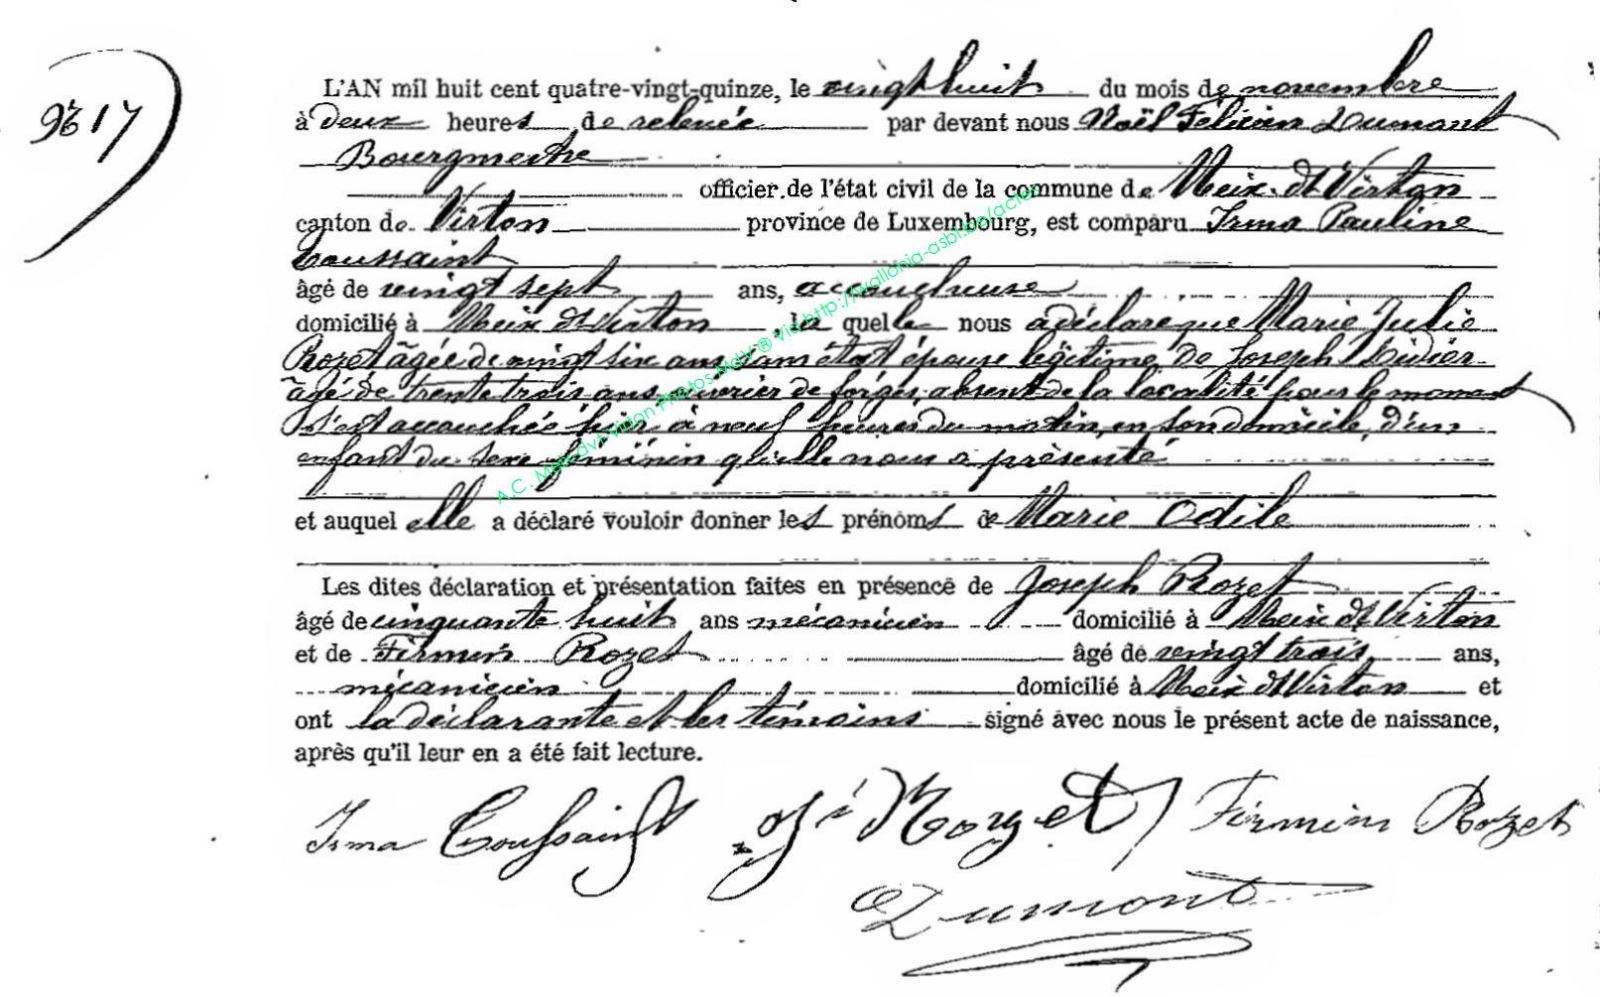 No 17
L'AN mil huit cent quatre-vingt-quinze, le vingt huit du mois de novembre
à deux heures de relevée par devant nous Noël Félicien Dumont
Bourgmestre
officier de l'état civil de la commune de Meix dt Virton
canton de Virton province de Luxembourg, est comparu Irma Pauline
Toussaint
âgé de vingt sept ans, accoucheuse
domicilié à Meix dt Virton, la quelle nous a déclaré que Marie Julie
Rozet âgée de vingt six ans, sans état épouse légitime de Joseph Didier
âgé de trente trois ans ouvrier de forges, absent de la localité pour le moment
s'est accouchée hier à neuf heures du matin, en son domicile, d'un
enfant du sexe féminin qu'elle nous a présenté
et auquel elle a déclaré vouloir donner les prénoms de Marie Odile
Les dites déclaration et présentation faites en présence de Joseph Rozet
âgé de cinquante huit ans mécanicien domicilié à Meix dt Virton
et de Firmin Rozet âgé de vingt trois ans,
mécanicien domicilié à Meix dt Virton et
ont la déclarante et les témoins signé avec nous le présent acte de naissance,
après qu'il leur en a été fait lecture.
Irma Toussaint Rozet Firmin Rozet
Dumont